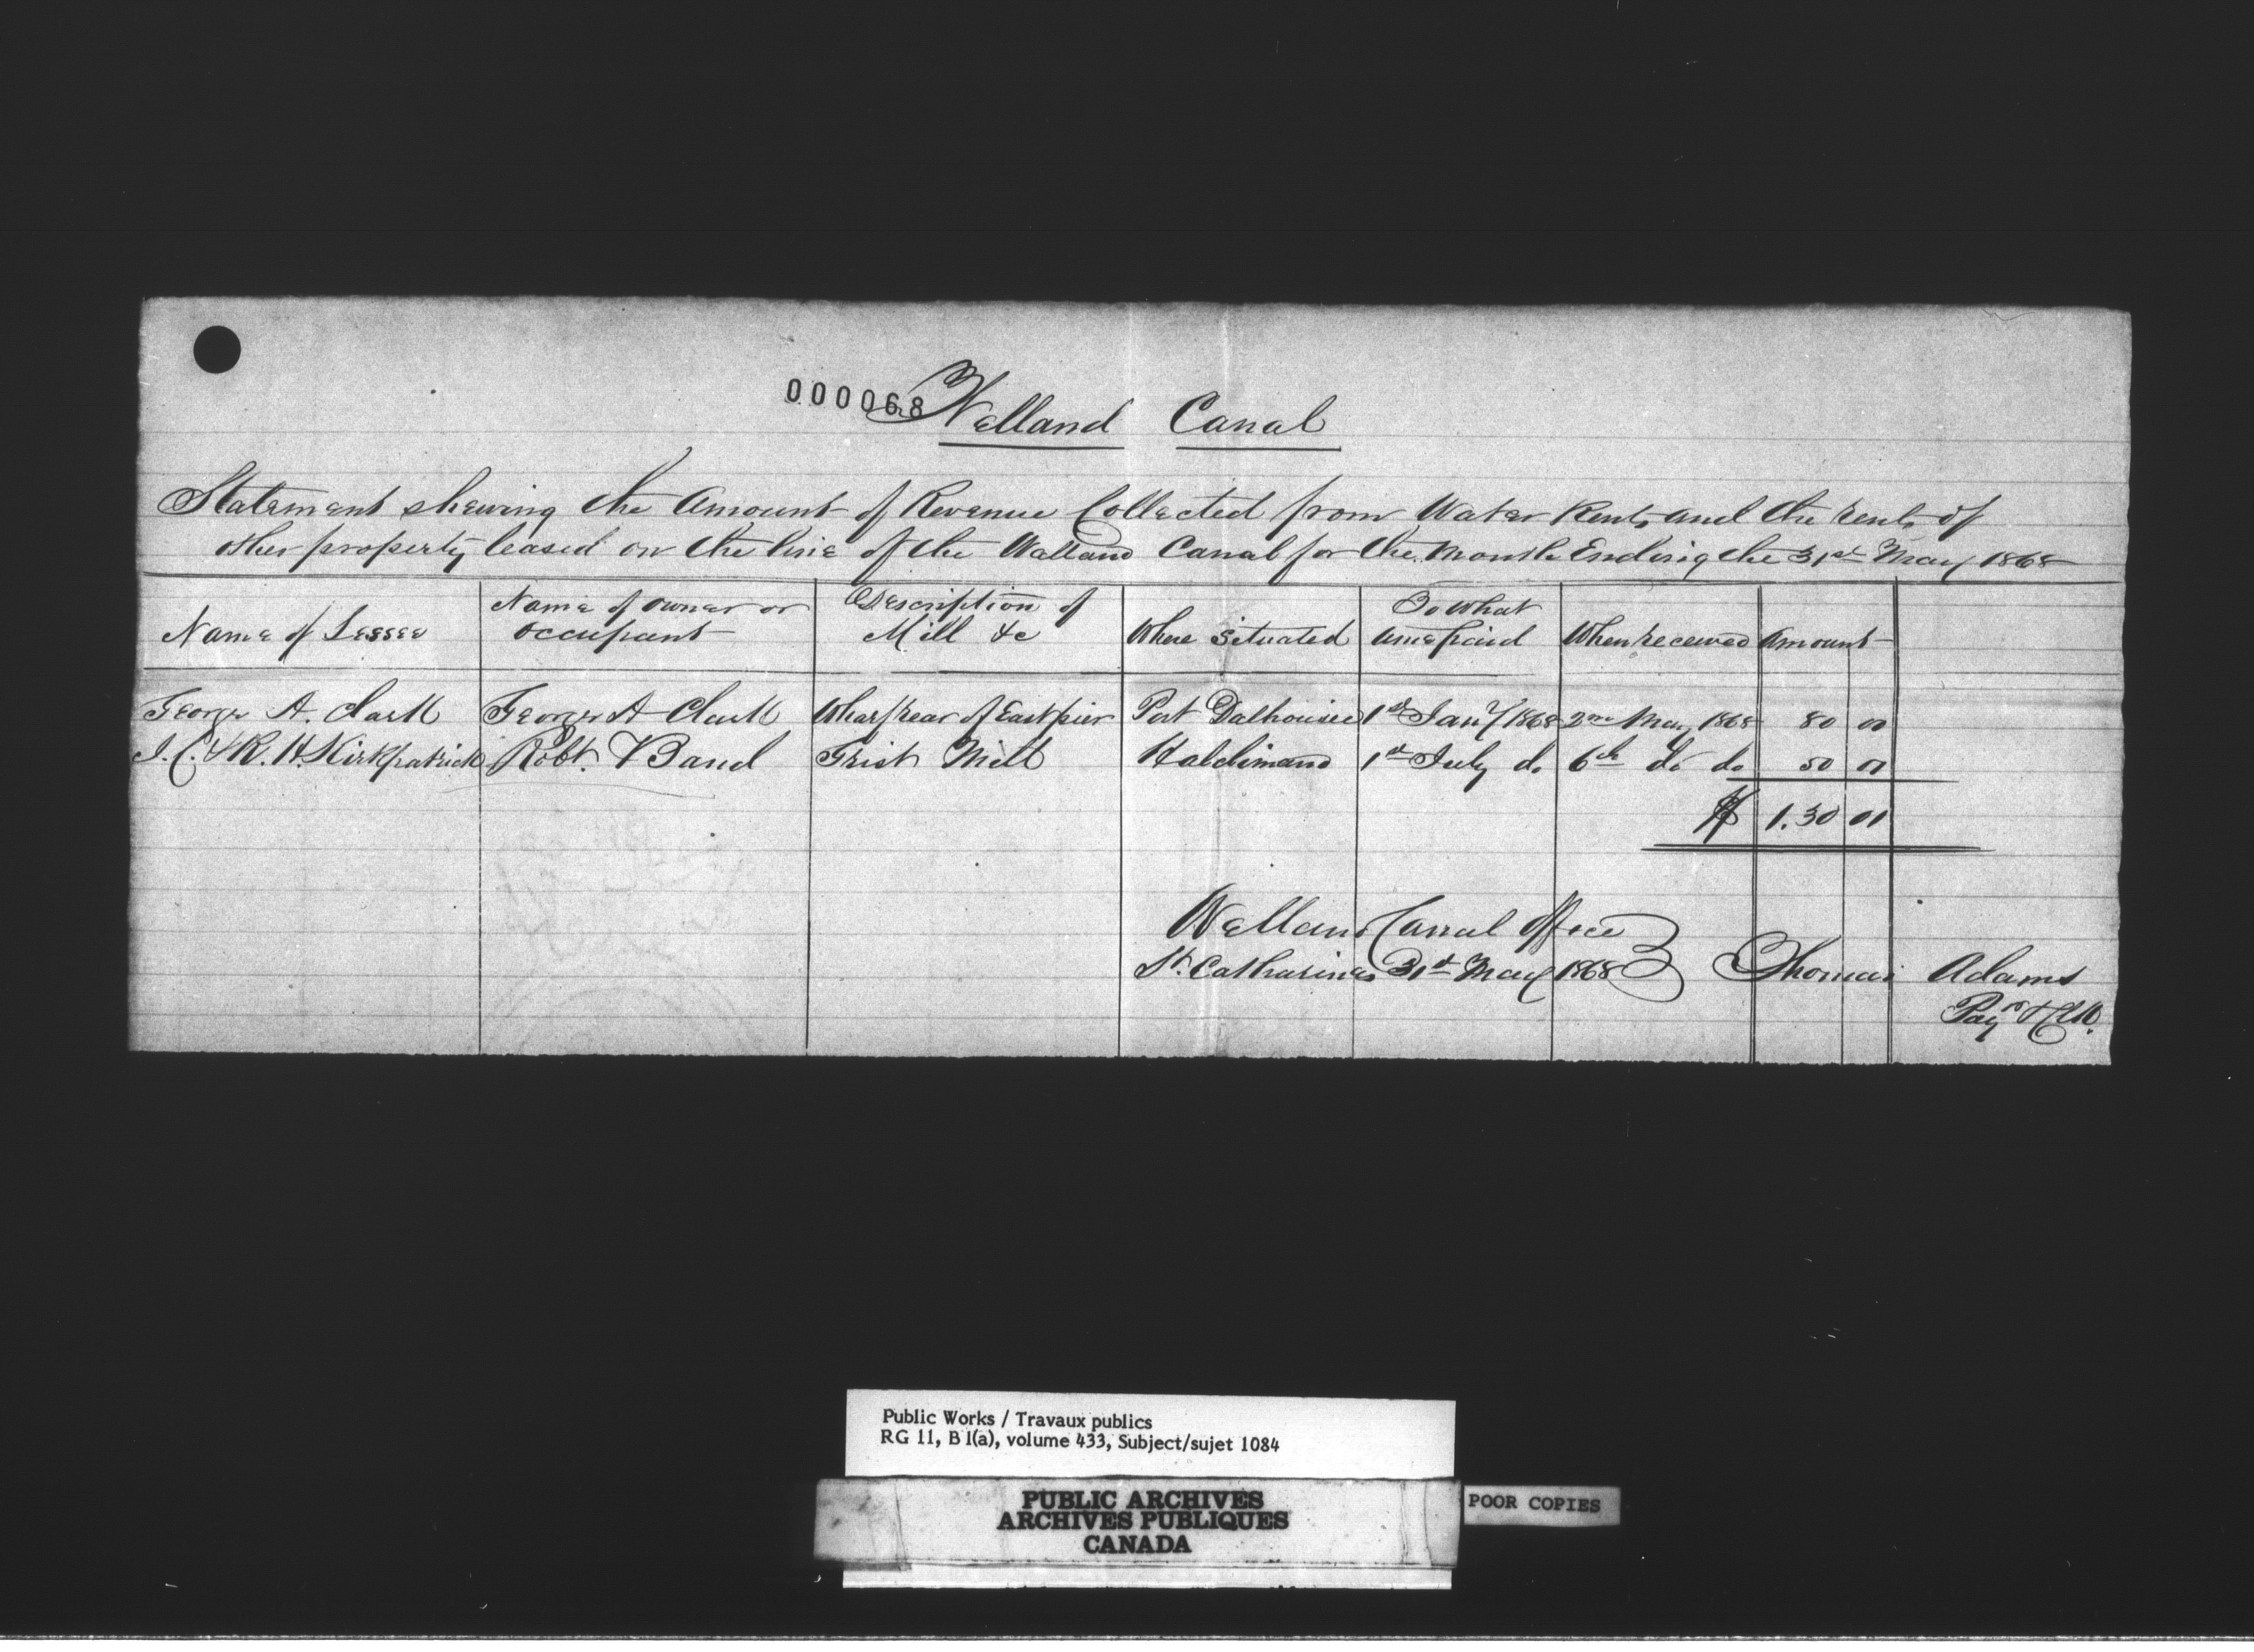 000068
Welland Canal
Statement shewing the Amount of Revenue Collected from Water Rents and the rents of
other property leased on the line of the Welland Canal for the Month Ending the 31st May 1868
Name of Lessee | Name of owner or occupant | Description of Mill &c | Where situated | To what time paid | When received | Amount
George A. Clark | George A Clark | Wharf rear of East pier | Port Dalhousie | 1st Jany 1868 | 2nd May 1868 | 80 00
J. C. & R. H. Kirkpatrick | Robt. Band | Grist Mill | Haldimand | 1st July do | 6th do do | 50 00
$ 1.30 00
Welland Canal Office
St. Catharines 31st May 1868 Thomas Adams
Public Works / Travaux publics
RG 11, B 1(a), volume 433, Subject/sujet 1084
PUBLIC ARCHIVES
ARCHIVES PUBLIQUES
CANADA
POOR COPIES